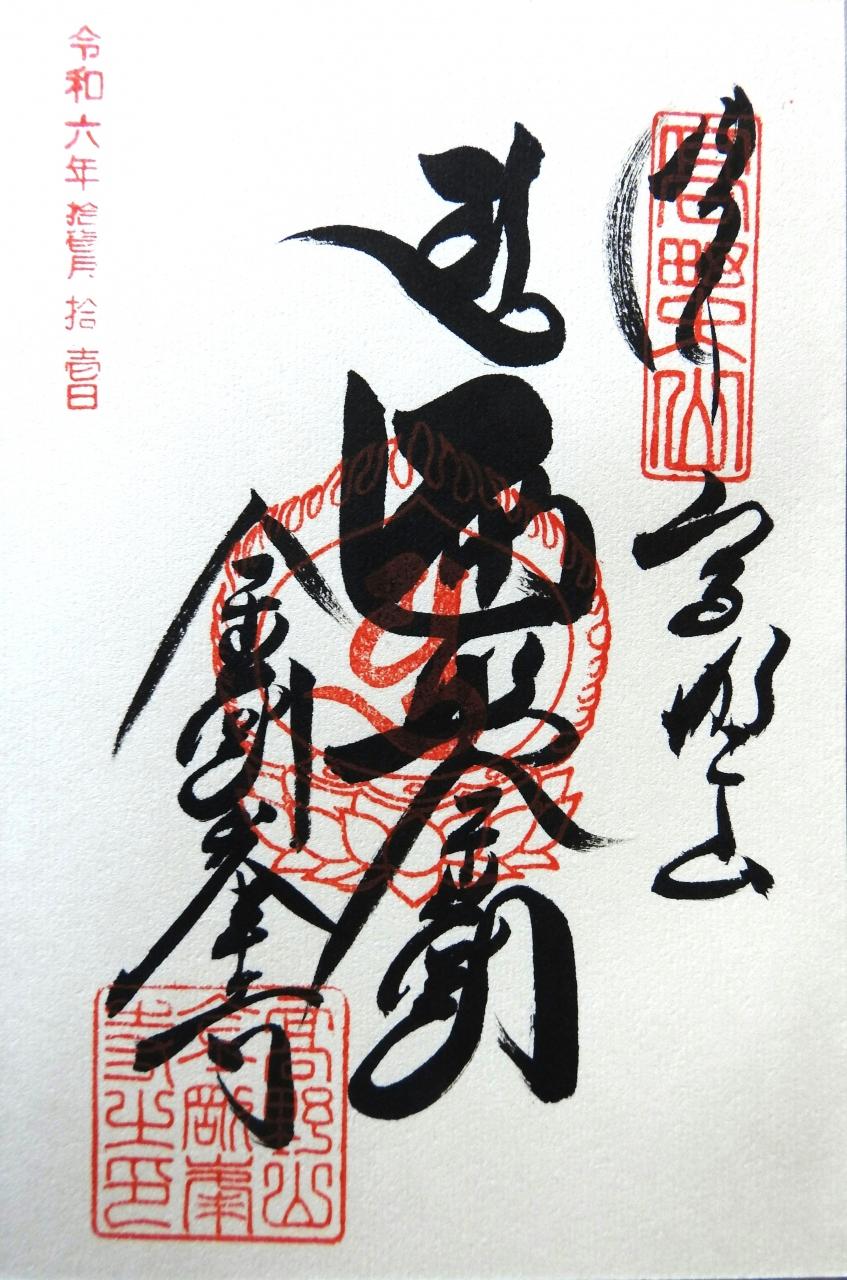 奉拝
高野山
高野山
遍照金剛
金剛峯寺
高野山
金剛峯
寺之印
令和六年拾貳月拾壱日